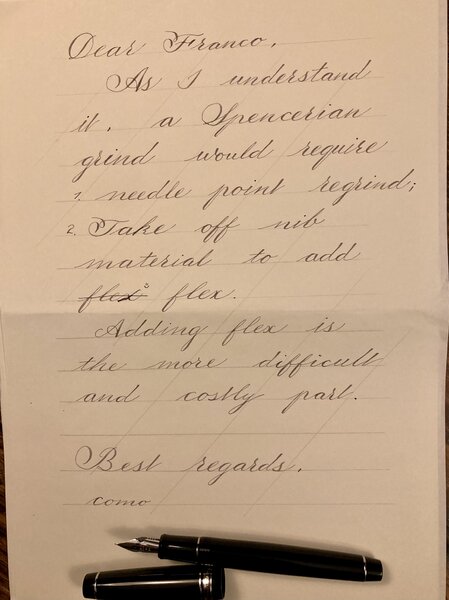 Dear Franco,
As I understand
it, a Spencerian
grind would require
1. needle point regrind;
2. Take off nib
material to add
flex flex.
Adding flex is
the more difficult
and costly part.
Best regards,
como